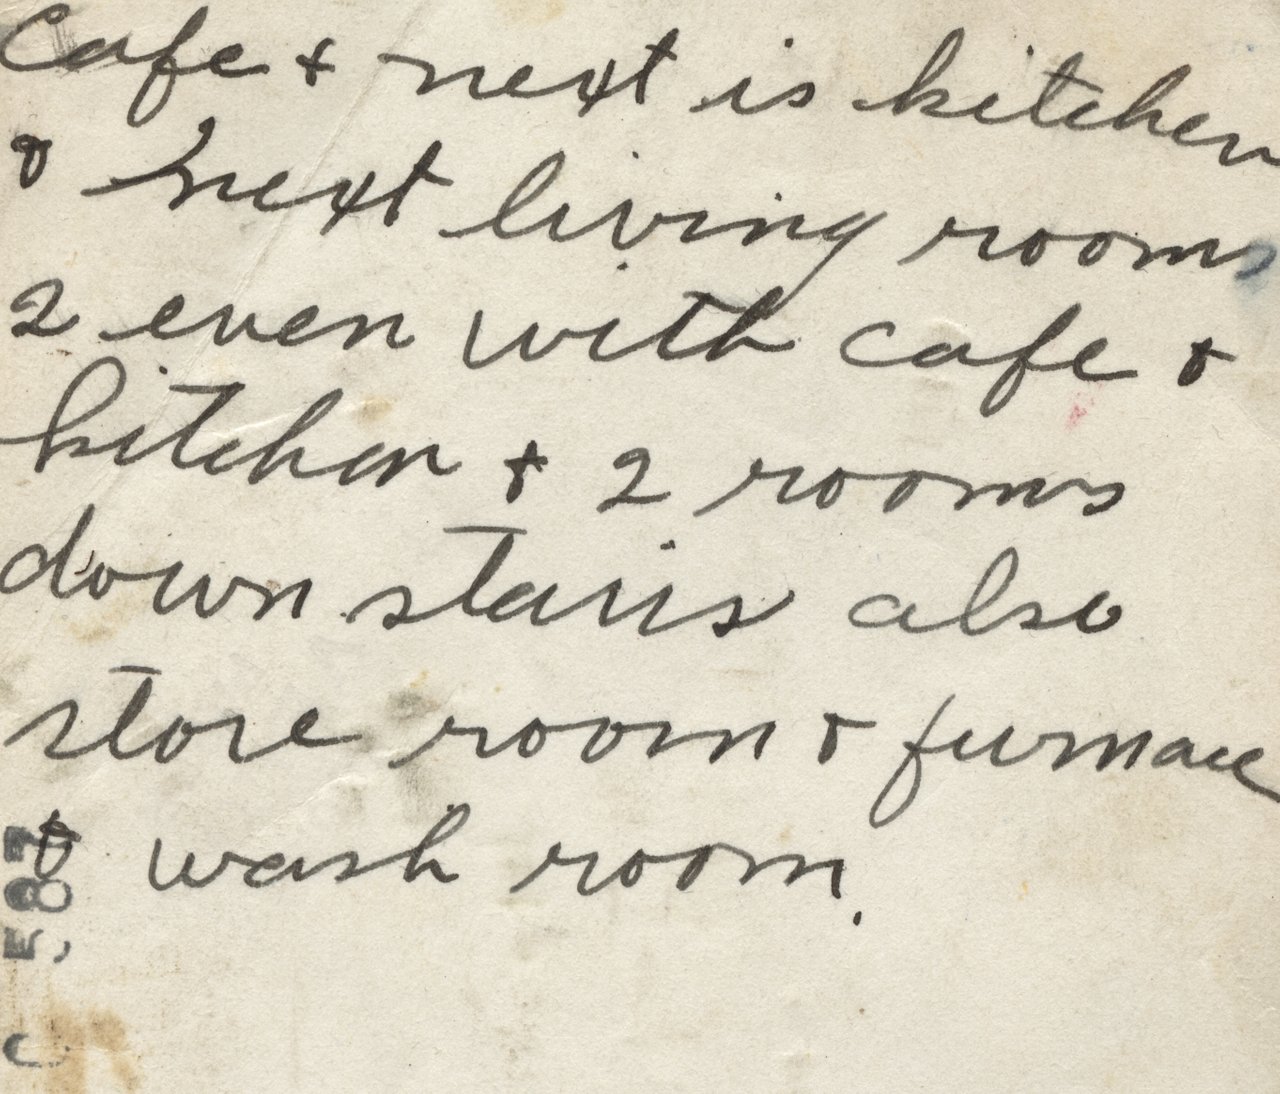 Cafe + next is kitchen
+ next living rooms
2 even with cafe +
kitchen + 2 rooms
down stairs also
store room + furnace
+ wash room.